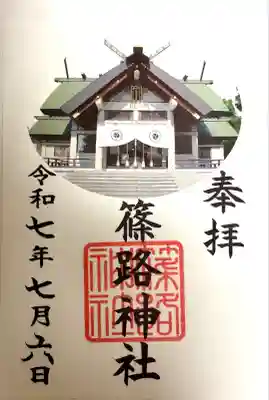 奉拝
篠路神社
令和七年七月六日
篠路
神社